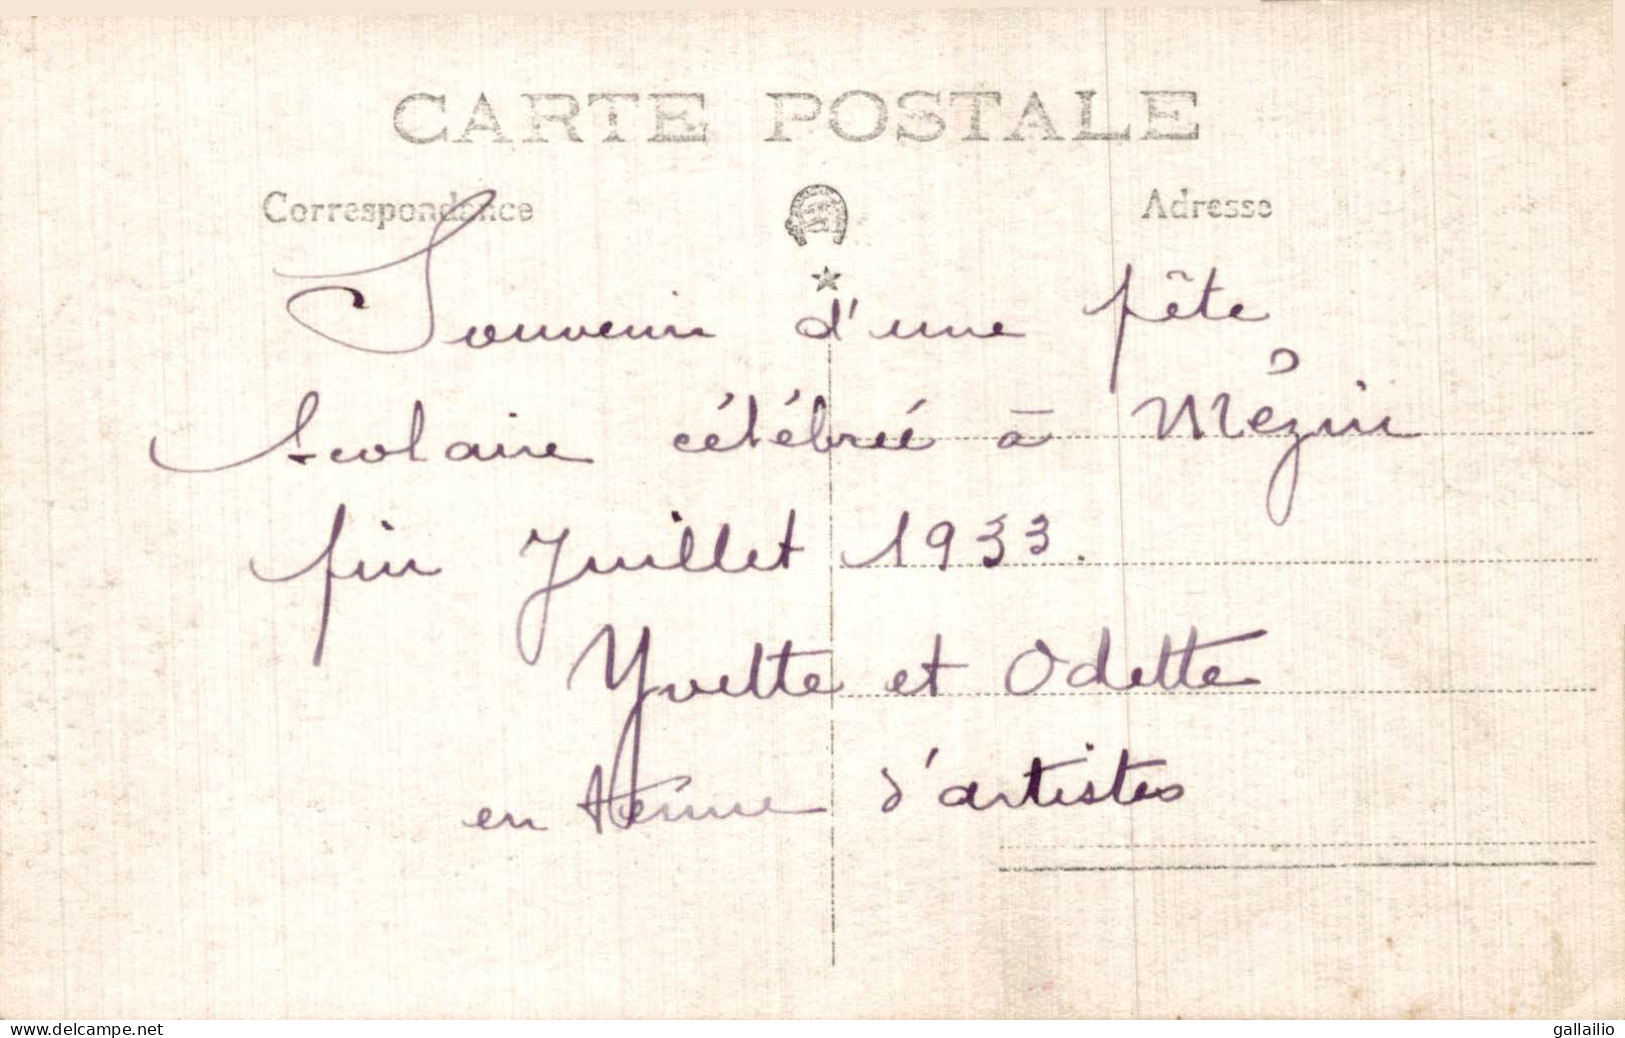 CARTE POSTALE
Correspondance
Adresse
Souvenir d'une fête
scolaire célébrée à Mézin
fin Juillet 1933.
Yvette et Odette
en tenue d'artistes
www.delcampe.net
gallailio